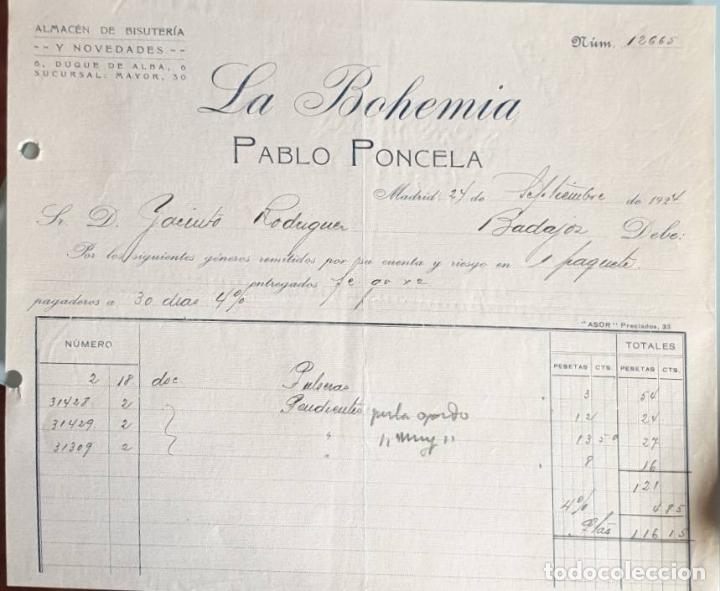 ALMACÉN DE BISUTERÍA
-- Y NOVEDADES --
6, DUQUE DE ALBA, 6
SUCURSAL: MAYOR, 30
Núm. 12665
La Bohemia
PABLO PONCELA
Madrid 27 de Septiembre de 1924
Sr. D. Jacinto Rodriguez Badajoz Debe:
Por los siguientes géneros remitidos por su cuenta y riesgo en 1 paquete
entregados
pagaderos a 30 dias 4%
"ASOR" Preciados, 33
NÚMERO TOTALES
PESETAS CTS. PESETAS CTS.
2 18 doc Pulseras 3 54
31428 2 Pendientes perla gordo 12 24
31429 2 " " muy " 13 50 27
31309 2 " 8 16
121
4% 4 85
Ptas 116 15
todocoleccion